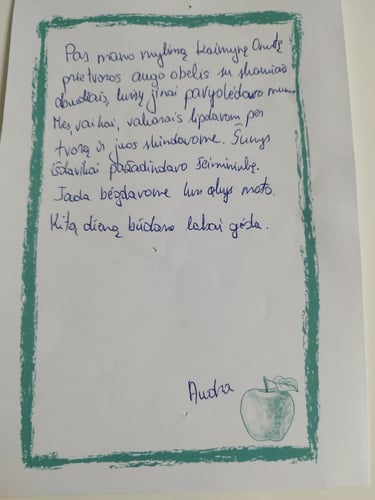 Pas mano mylimą kaimynę Onutę
prie tvoros augo obelis su skaniais
obuoliais, kurių jinai pavyolėdavo mums
Mes, vaikai, vakarais lipdavom per
tvorą ir juos skindavome. Šunys
išdavikai pažadindavo šeimininkę.
Tada bėgdavome kur akys mato.
Kitą dieną būdavo labai gėda.
Audra